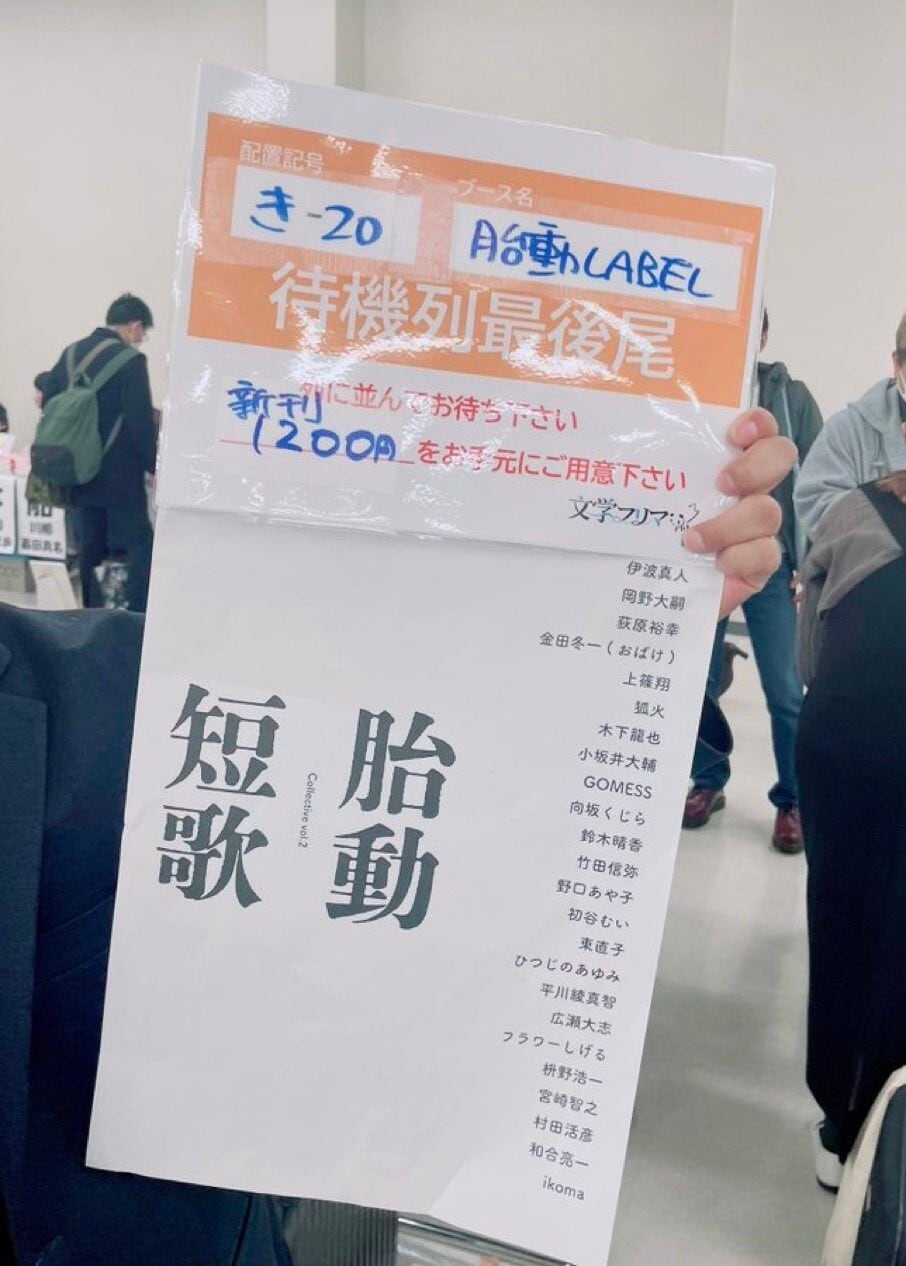 配置記号
き-20
ブース名
胎動LABEL
待機列最後尾
列に並んでお待ち下さい
新刊
1200円 をお手元にご用意下さい
文学フリマ
伊波真人
岡野大嗣
荻原裕幸
金田冬一(おばけ)
上篠翔
狐火
木下龍也
小坂井大輔
GOMESS
向坂くじら
鈴木晴香
竹田信弥
野口あや子
初谷むい
東直子
ひつじのあゆみ
平川綾真智
広瀬大志
フラワーしげる
枡野浩一
宮崎智之
村田活彦
和合亮一
ikoma
胎動
Collective vol.2
短歌
胎
川柳
暮田真名